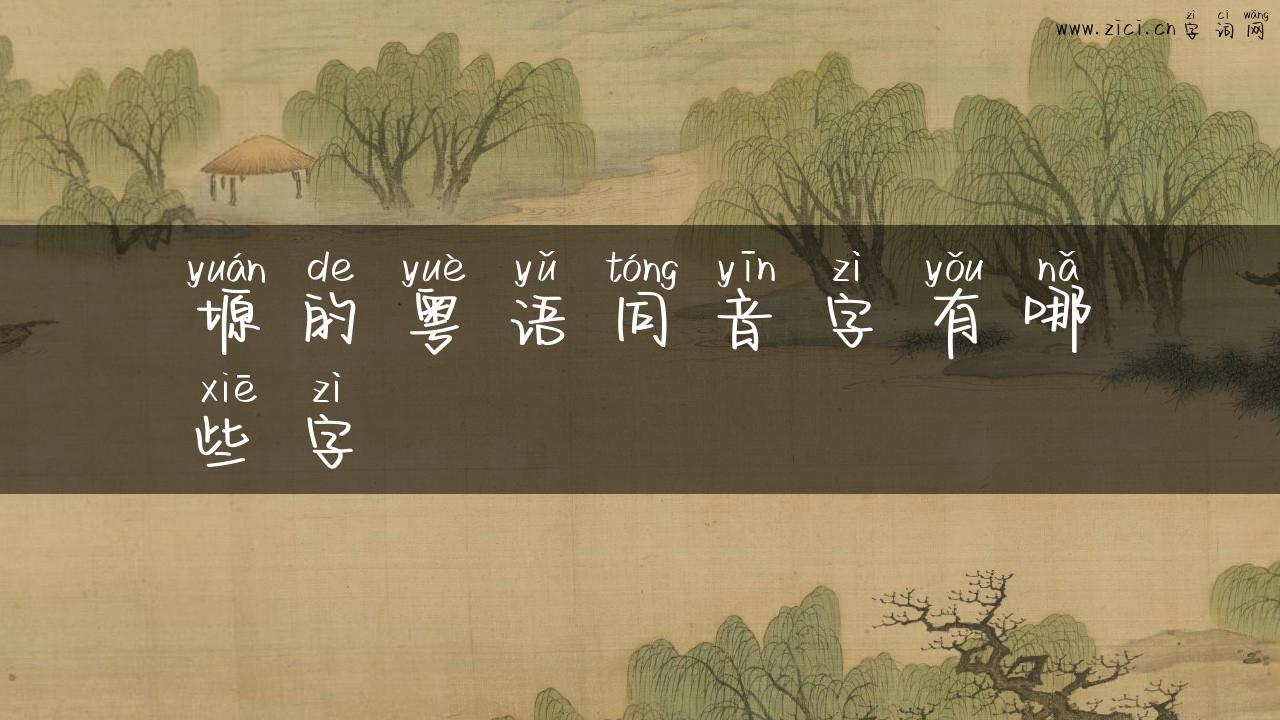 zì cí wǎng
www.zici.cn 字 词 网
yuán de yuè yǔ tóng yīn zì yǒu nǎ
塬 的 粤 语 同 音 字 有 哪
xiē zì
些 字